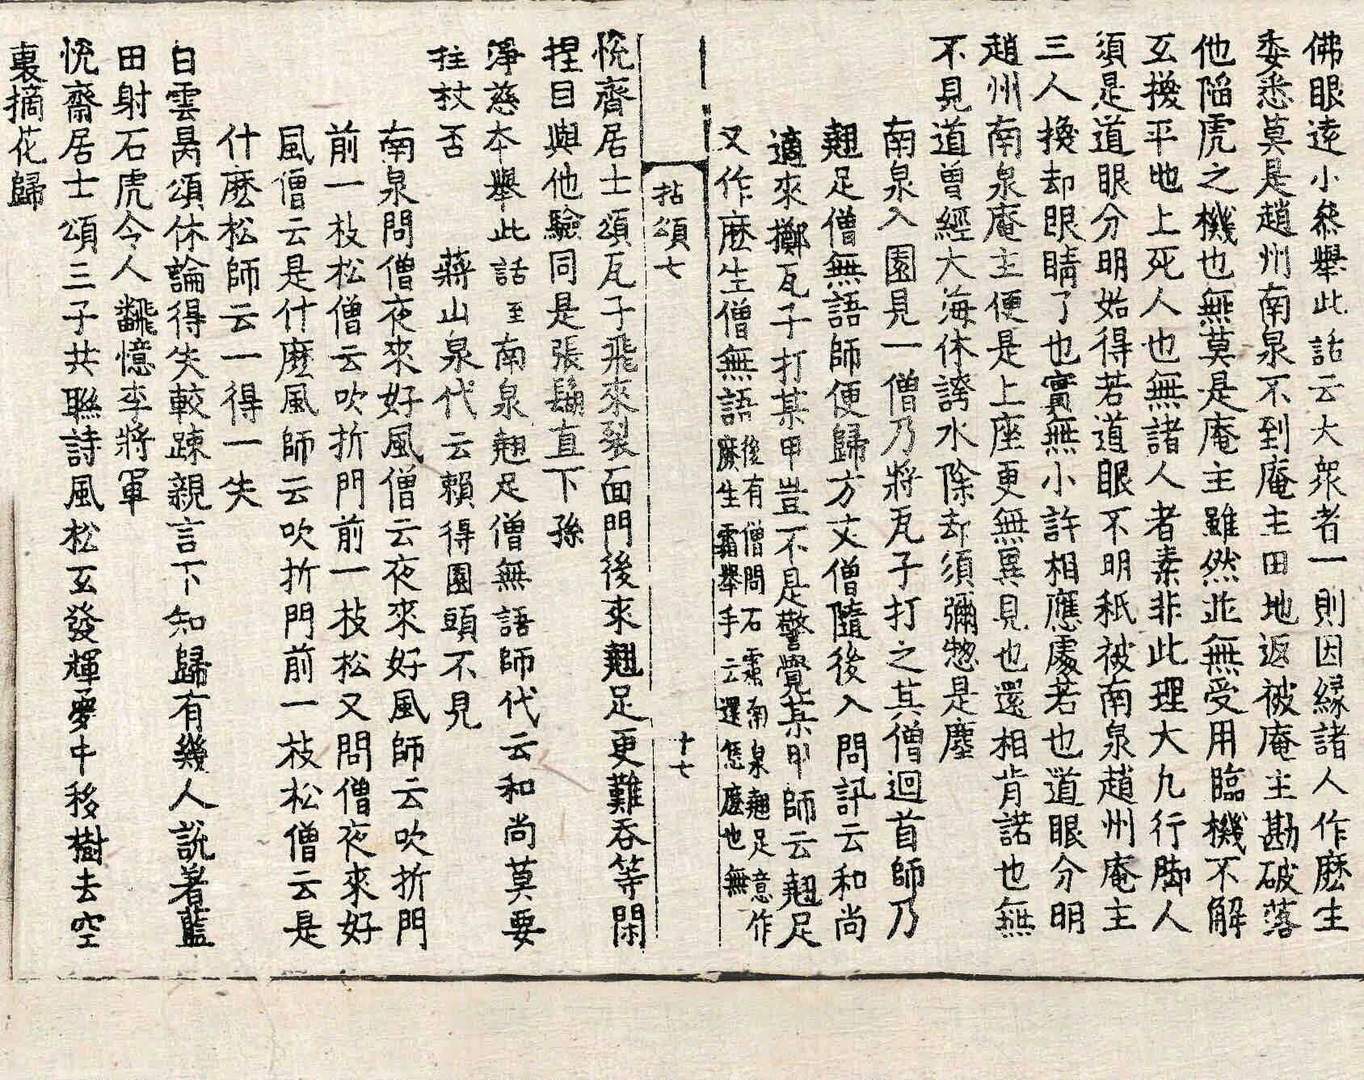 佛眼遠小叅舉此話云大衆者一則因緣諸人作麽生
委悉莫是趙州南泉不到庵主田地返被庵主勘破落
他陷虎之機也無莫是庵主雖然並無受用臨機不解
玄機平地上死人也無諸人者素非此理大凡行脚人
須是道眼分明始得若道眼不明秖被南泉趙州庵主
三人換却眼睛了也實無小許相應處若也道眼分明
趙州南泉庵主便是上座更無異見也還相肯諾也無
不見道曾經大海休誇水除却須彌惣是塵
南泉入園見一僧乃將瓦子打之其僧迴首師乃
翹足僧無語師便歸方丈僧隨後入問訊云和尚
適來擲瓦子打某甲豈不是警覺某甲師云翹足
又作麽生僧無語後有僧問石霜南泉翹足意作
麽生霜舉手云還恁麽也無
拈頌七
十七
悅齋居士頌瓦子飛來裂面門後來翹足更難吞等閑
捏目與他驗同是張鬍直下孫
淨慈本舉此話至南泉翹足僧無語師代云和尚莫要
拄杖否 蔣山泉代云賴得園頭不見
南泉問僧夜來好風僧云夜來好風師云吹折門
前一枝松僧云吹折門前一枝松又問僧夜來好
風僧云是什麽風師云吹折門前一枝松僧云是
什麽松師云一得一失
白雲昺頌休論得失較踈親言下知歸有幾人說著藍
田射石虎今人飜憶李將軍
悅齋居士頌三子共聮詩風松互發輝夢中移樹去空
裏摘花歸